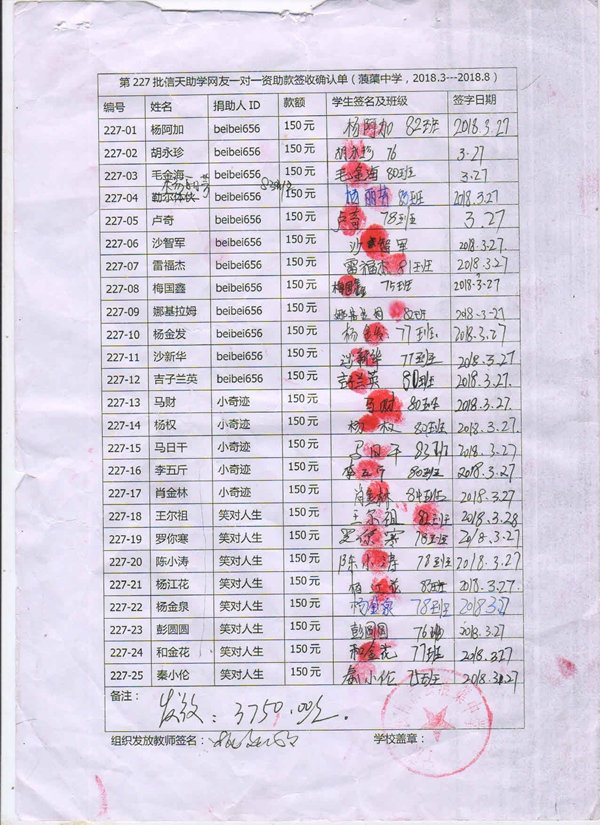 第 227 批信天助学网友一对一资助款签收确认单（蕖蕖中学，2018.3---2018.8）
编号 姓名 捐助人 ID 款额 学生签名及班级 签字日期
227-01 杨阿加 beibei656 150 元 杨阿加 82班 2018.3.27
227-02 胡永珍 beibei656 150 元 胡永珍 76 3.27
227-03 毛金海 beibei656 150 元 毛金海 80班 3.27
杨丽芳
227-04 勒尔体伙 beibei656 150 元 杨丽芳 83班 2018.3.27
227-05 卢奇 beibei656 150 元 卢奇 78班 3.27
227-06 沙智军 beibei656 150 元 沙智军 2018.3.27.
227-07 雷福杰 beibei656 150 元 雷福杰 81班 2018.3.27
227-08 梅国鑫 beibei656 150 元 梅国鑫 75班 2018.3.27
227-09 娜基拉姆 beibei656 150 元 82班 2018.3.27
227-10 杨金发 beibei656 150 元 杨金发 77班 2018.3.27
227-11 沙新华 beibei656 150 元 沙新华 77班 2018.3.27
227-12 吉子兰英 beibei656 150 元 吉子兰英 80班 2018.3.27
227-13 马财 小奇迹 150 元 马财 80班 2018.3.27.
227-14 杨权 小奇迹 150 元 杨权 82班 2018.3.27.
227-15 马日干 小奇迹 150 元 马日干 83班 2018.3.27
227-16 李五斤 小奇迹 150 元 李五斤 80班 2018.3.27
227-17 肖金林 小奇迹 150 元 肖金林 84班 2018.3.27
227-18 王尔祖 笑对人生 150 元 王尔祖 82班 2018.3.28
227-19 罗你寒 笑对人生 150 元 罗你寒 78班 2018.3.27.
227-20 陈小涛 笑对人生 150 元 陈小涛 78班 2018.3.27.
227-21 杨江花 笑对人生 150 元 杨江花 83班 2018.3.27.
227-22 杨金泉 笑对人生 150 元 杨金泉 78班 2018.3.27
227-23 彭圆圆 笑对人生 150 元 彭圆圆 76班 2018.3.27.
227-24 和金花 笑对人生 150 元 和金花 77班 2018.3.27
227-25 秦小伦 笑对人生 150 元 秦小伦 75班 2018.3.27
备注：
发放：3750.00元.
组织发放教师签名： 学校盖章：